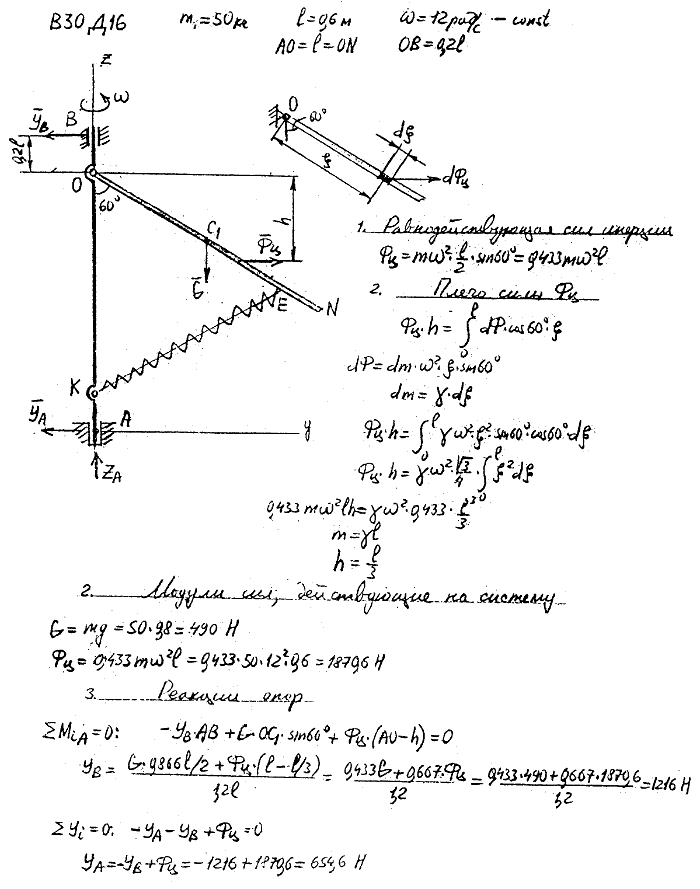 В30,Д16 m₁=50кг l=0,6м ω=12рад/с – const
АО=l=ОN ОВ=0,2l
z
B ω
ȳ_B
0,2l
O
60°
C₁
h
Φ̄ц
Ḡ
E N
K
ȳ_A A y
Z_A
O
60°
dξ
ξ
dΦц
1. Равнодействующая сил инерции
Φц = mω²·l/2·sin60° = 0,433mω²l
2. Плечо силы Φц
Φц·h = ∫₀ˡ dΦ·cos60°·ξ
dΦ = dm·ω²·ξ·sin60°
dm = γ·dξ
Φц·h = ∫₀ˡ γω²·ξ²·sin60°·cos60°dξ
Φц·h = γω²·√3/4·∫₀ˡ ξ²dξ
0,433mω²lh = γω²·0,433·l³/3
m = γl
h = l/3
2. Модули сил, действующие на систему
G = mg = 50·9,8 = 490 Н
Φц = 0,433mω²l = 0,433·50·12²·0,6 = 1870,6 Н
3. Реакции опор
ΣM_iA=0: -y_B·AB + G·OC₁·sin60° + Φц·(AO-h) = 0
y_B = (G·0,866l/2 + Φц·(l-l/3))/1,2l = (0,433G + 0,667·Φц)/1,2 = (0,433·490 + 0,667·1870,6)/1,2 = 1216 Н
Σy_i=0: -y_A - y_B + Φц = 0
y_A = -y_B + Φц = -1216 + 1870,6 = 654,6 Н